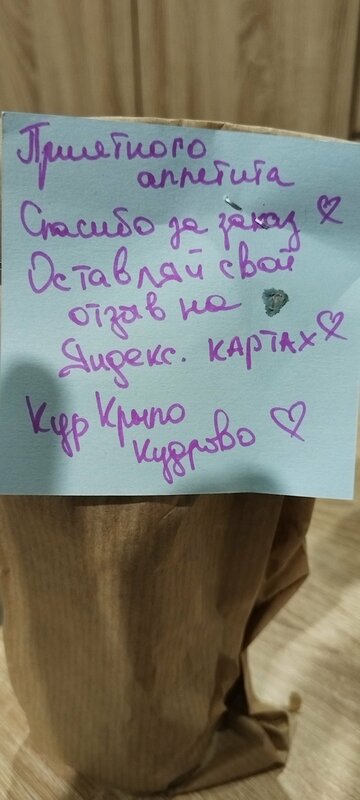 Приятного
аппетита
Спасибо за заказ
Оставляй свой
отзыв на
Яндекс. КАРТАХ
Кур Крыло
Кудрово